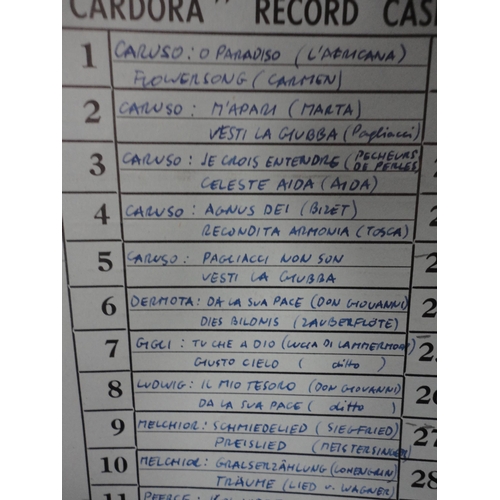 CARDORA" RECORD CAS
1 CARUSO: O PARADISO (L'AFRICANA)
FLOWERSONG (CARMEN)
2 CARUSO: M'APARI (MARTA)
VESTI LA GIUBBA (Pagliacci)
3 CARUSO: JE CROIS ENTENDRE (PECHEURS DE PERLES)
CELESTE AIDA (AIDA)
4 CARUSO: AGNUS DEI (BIZET)
RECONDITA ARMONIA (TOSCA)
5 CARUSO: PAGLIACCI NON SON
VESTI LA GIUBBA
6 DERMOTA: DA LA SUA PACE (DON GIOVANNI)
DIES BILDNIS (ZAUBERFLOTE)
7 GIGLI: TU CHE A DIO (LUCIA DI LAMMERMOOR)
GIUSTO CIELO ( ditto )
8 LUDWIG: IL MIO TESORO (DON GIOVANNI)
DA LA SUA PACE ( ditto ) 26
9 MELCHIOR: SCHMIEDELIED (SIEGFRIED)
PREISLIED (MEISTERSINGER) 27
10 MELCHIOR: GRALSERZÄHLUNG (LOHENGRIN)
TRÄUME (LIED v. WAGNER) 28
11 PEERCE: